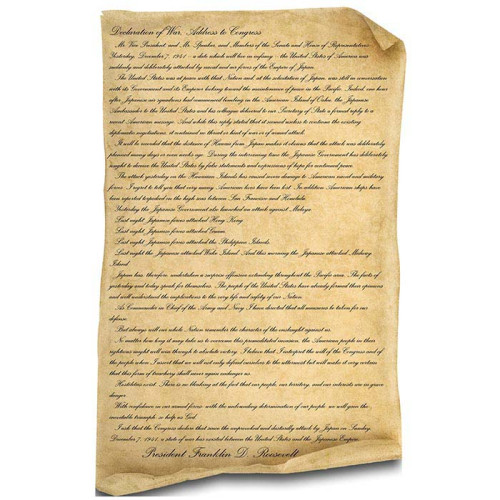 Declaration of War, Address to Congress
Mr. Vice President, and Mr. Speaker, and Members of the Senate and House of Representatives:
Yesterday, December 7, 1941 - a date which will live in infamy - the United States of America was
suddenly and deliberately attacked by naval and air forces of the Empire of Japan.
The United States was at peace with that Nation and, at the solicitation of Japan, was still in conversation
with its Government and its Emperor looking toward the maintenance of peace in the Pacific. Indeed, one hour
after Japanese air squadrons had commenced bombing in the American Island of Oahu, the Japanese
Ambassador to the United States and his colleague delivered to our Secretary of State a formal reply to a
recent American message. And while this reply stated that it seemed useless to continue the existing
diplomatic negotiations, it contained no threat or hint of war or of armed attack.
It will be recorded that the distance of Hawaii from Japan makes it obvious that the attack was deliberately
planned many days or even weeks ago. During the intervening time the Japanese Government has deliberately
sought to deceive the United States by false statements and expressions of hope for continued peace.
The attack yesterday on the Hawaiian Islands has caused severe damage to American naval and military
forces. I regret to tell you that very many American lives have been lost. In addition American ships have
been reported torpedoed on the high seas between San Francisco and Honolulu.
Yesterday the Japanese Government also launched an attack against Malaya.
Last night Japanese forces attacked Hong Kong.
Last night Japanese forces attacked Guam.
Last night Japanese forces attacked the Philippine Islands.
Last night the Japanese attacked Wake Island. And this morning the Japanese attacked Midway
Island.
Japan has, therefore, undertaken a surprise offensive extending throughout the Pacific area. The facts of
yesterday and today speak for themselves. The people of the United States have already formed their opinions
and well understand the implications to the very life and safety of our Nation.
As Commander in Chief of the Army and Navy I have directed that all measures be taken for our
defense.
But always will our whole Nation remember the character of the onslaught against us.
No matter how long it may take us to overcome this premeditated invasion, the American people in their
righteous might will win through to absolute victory. I believe that I interpret the will of the Congress and of
the people when I assert that we will not only defend ourselves to the uttermost but will make it very certain
that this form of treachery shall never again endanger us.
Hostilities exist. There is no blinking at the fact that our people, our territory, and our interests are in grave
danger.
With confidence in our armed forces with the unbounding determination of our people we will gain the
inevitable triumph so help us God.
I ask that the Congress declare that since the unprovoked and dastardly attack by Japan on Sunday,
December 7, 1941, a state of war has existed between the United States and the Japanese Empire.
President Franklin D. Roosevelt